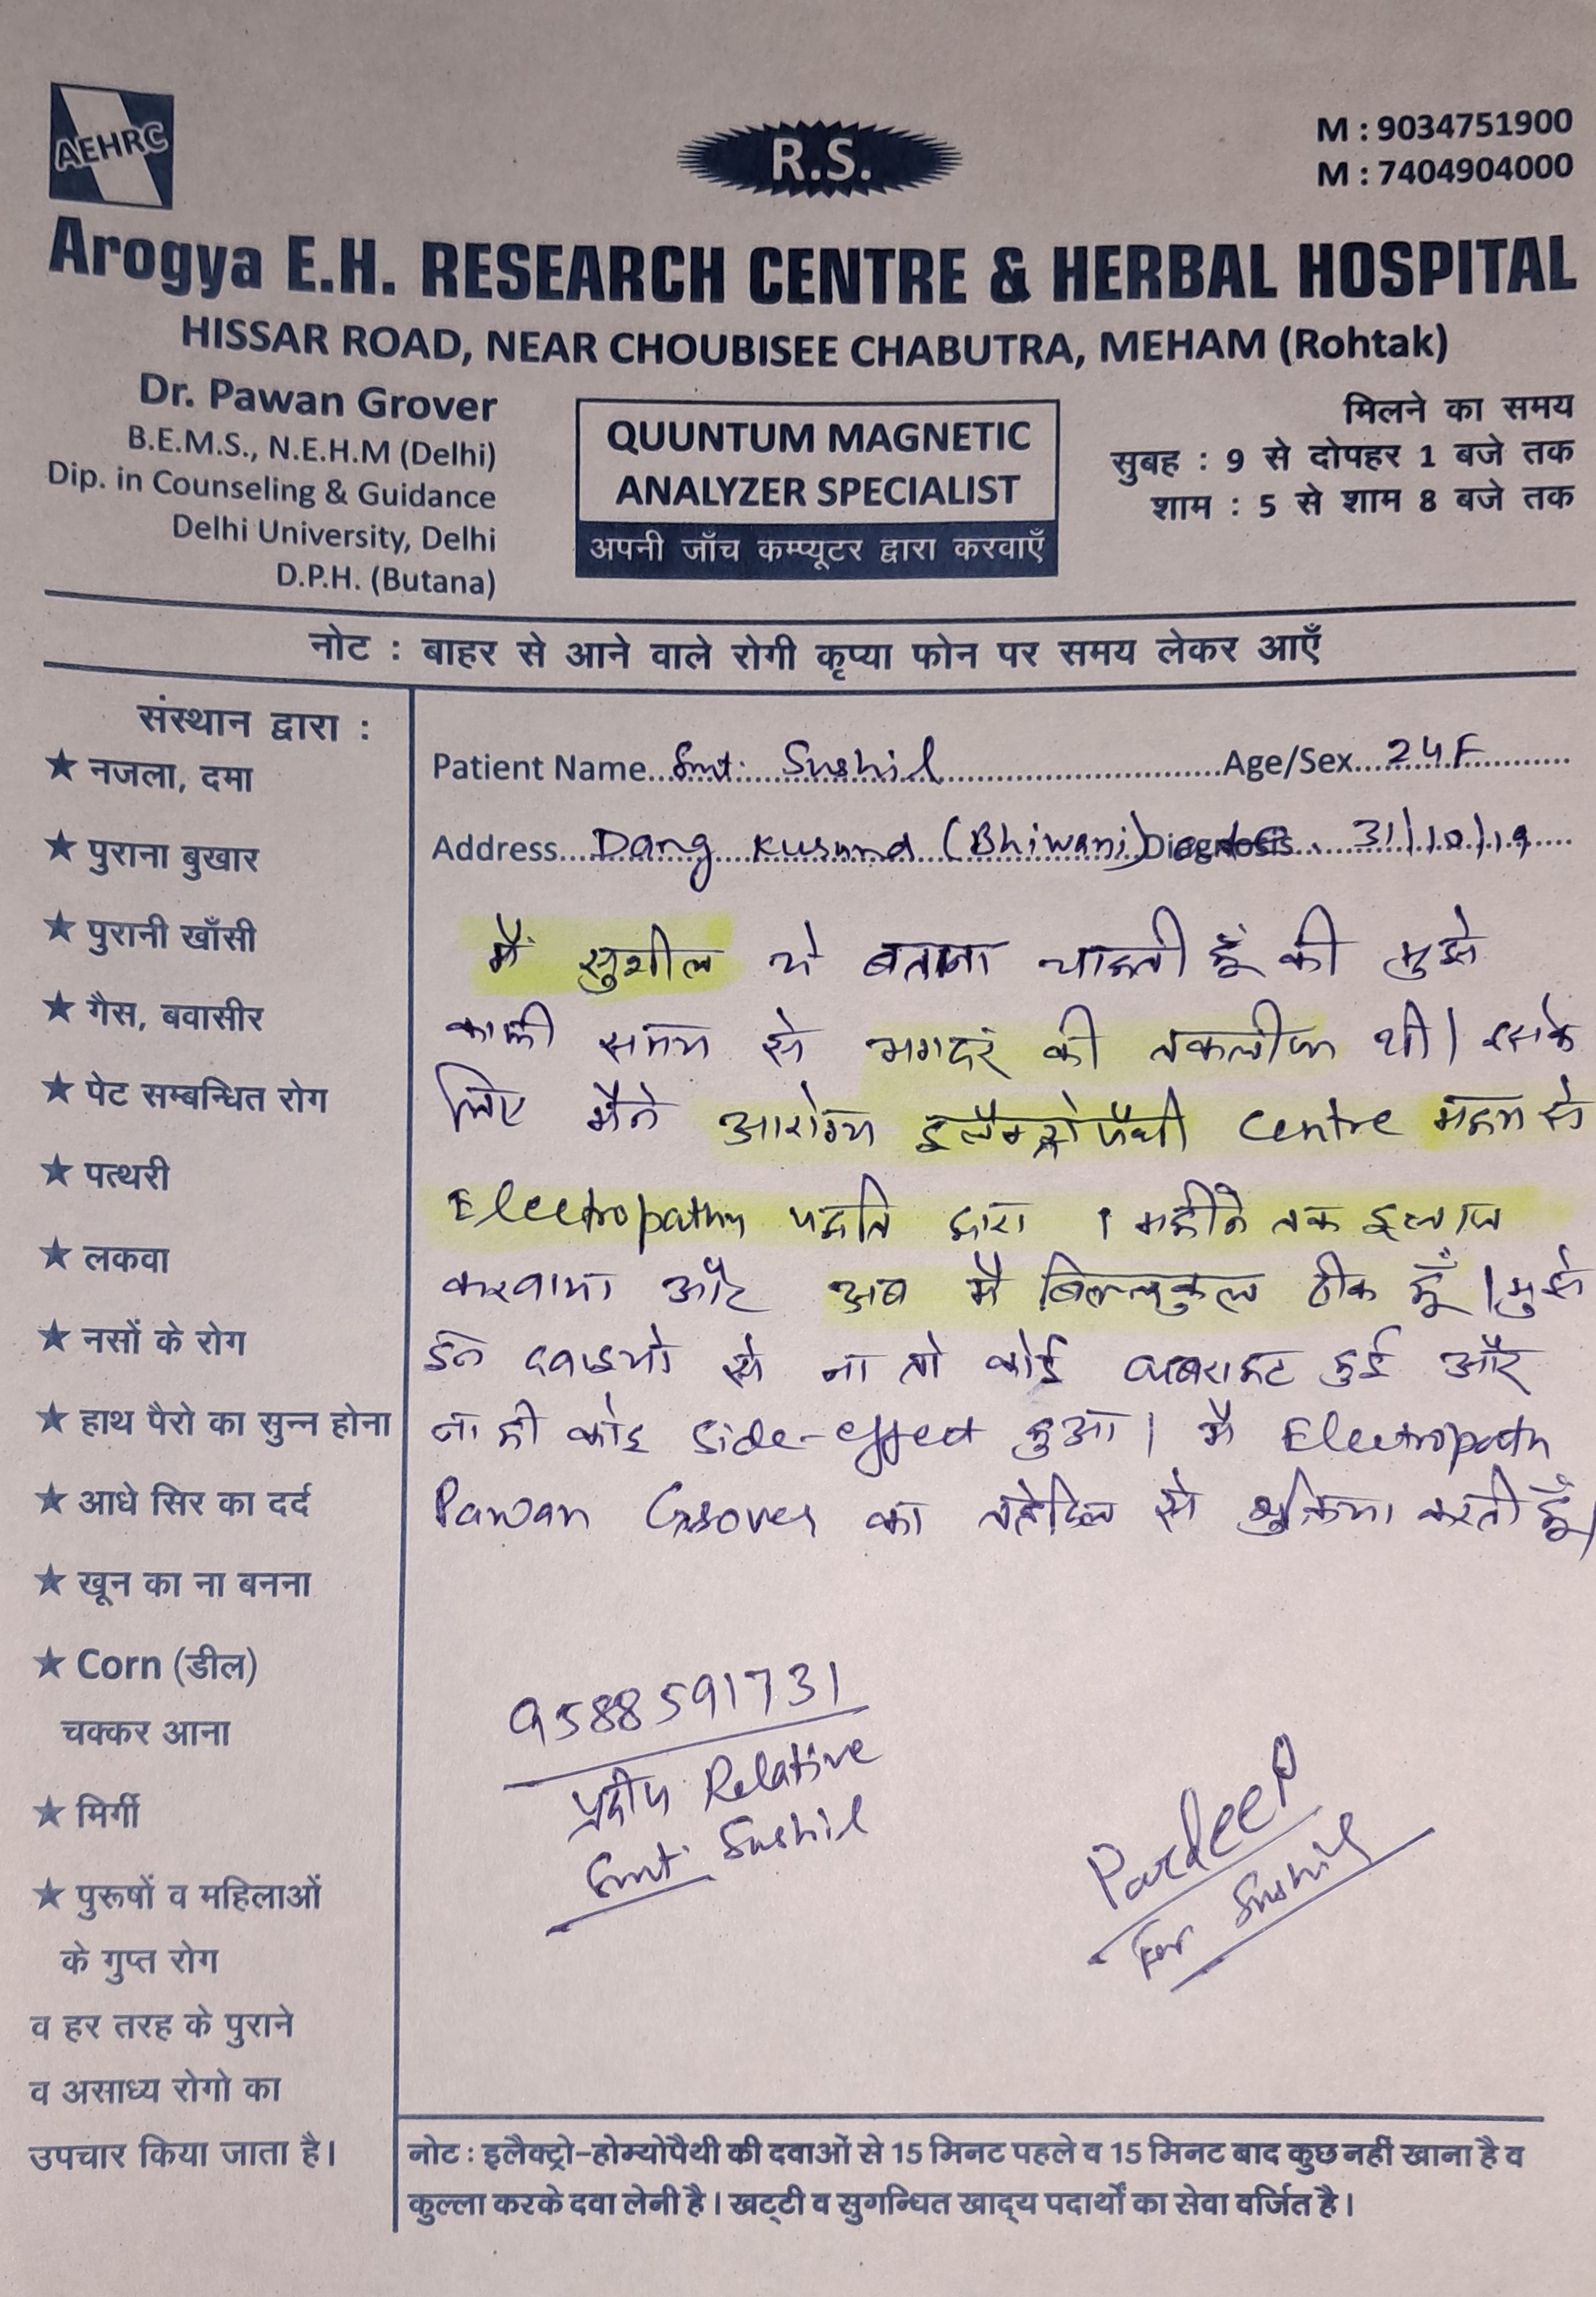 AEHRC
R.S.
M : 9034751900
M : 7404904000
Arogya E.H. RESEARCH CENTRE & HERBAL HOSPITAL
HISSAR ROAD, NEAR CHOUBISEE CHABUTRA, MEHAM (Rohtak)
Dr. Pawan Grover
B.E.M.S., N.E.H.M (Delhi)
Dip. in Counseling & Guidance
Delhi University, Delhi
D.P.H. (Butana)
QUUNTUM MAGNETIC
ANALYZER SPECIALIST
अपनी जाँच कम्प्यूटर द्वारा करवाएँ
मिलने का समय
सुबह : 9 से दोपहर 1 बजे तक
शाम : 5 से शाम 8 बजे तक
नोट : बाहर से आने वाले रोगी कृप्या फोन पर समय लेकर आएँ
संस्थान द्वारा :
★ नजला, दमा
★ पुराना बुखार
★ पुरानी खाँसी
★ गैस, बवासीर
★ पेट सम्बन्धित रोग
★ पत्थरी
★ लकवा
★ नसों के रोग
★ हाथ पैरो का सुन्न होना
★ आधे सिर का दर्द
★ खून का ना बनना
★ Corn (डील)
चक्कर आना
★ मिर्गी
★ पुरूषों व महिलाओं
के गुप्त रोग
व हर तरह के पुराने
व असाध्य रोगो का
उपचार किया जाता है।
Patient Name Smt. Sushil Age/Sex 24F
Address Dang Kusumd (Bhiwani) Diegnosis 31/10/19
मैं सुशील ये बताना चाहती हूँ की मुझे
काफी समय से भगदरं की तकलीफ थी। इसके
लिए मैने आरोग्य इलैक्ट्रोपैथी Centre महम से
Electropathy पद्धति द्वारा 1 महीने तक इलाज
करवाया और अब मै बिल्लकुल ठीक हूँ। मुझे
इन दवाइयो से ना तो कोई घबराहट हुई और
ना ही कोइ Side-effect हुआ। मै Electropath
Pawan Grover का तहेदिल से शुक्रिया करती हूँ।
9588591731
प्रदीप Relative
Smt. Sushil
Pardeep
For Sushil
नोट : इलैक्ट्रो-होम्योपैथी की दवाओं से 15 मिनट पहले व 15 मिनट बाद कुछ नहीं खाना है व
कुल्ला करके दवा लेनी है। खट्टी व सुगन्धित खाद्य पदार्थों का सेवा वर्जित है।